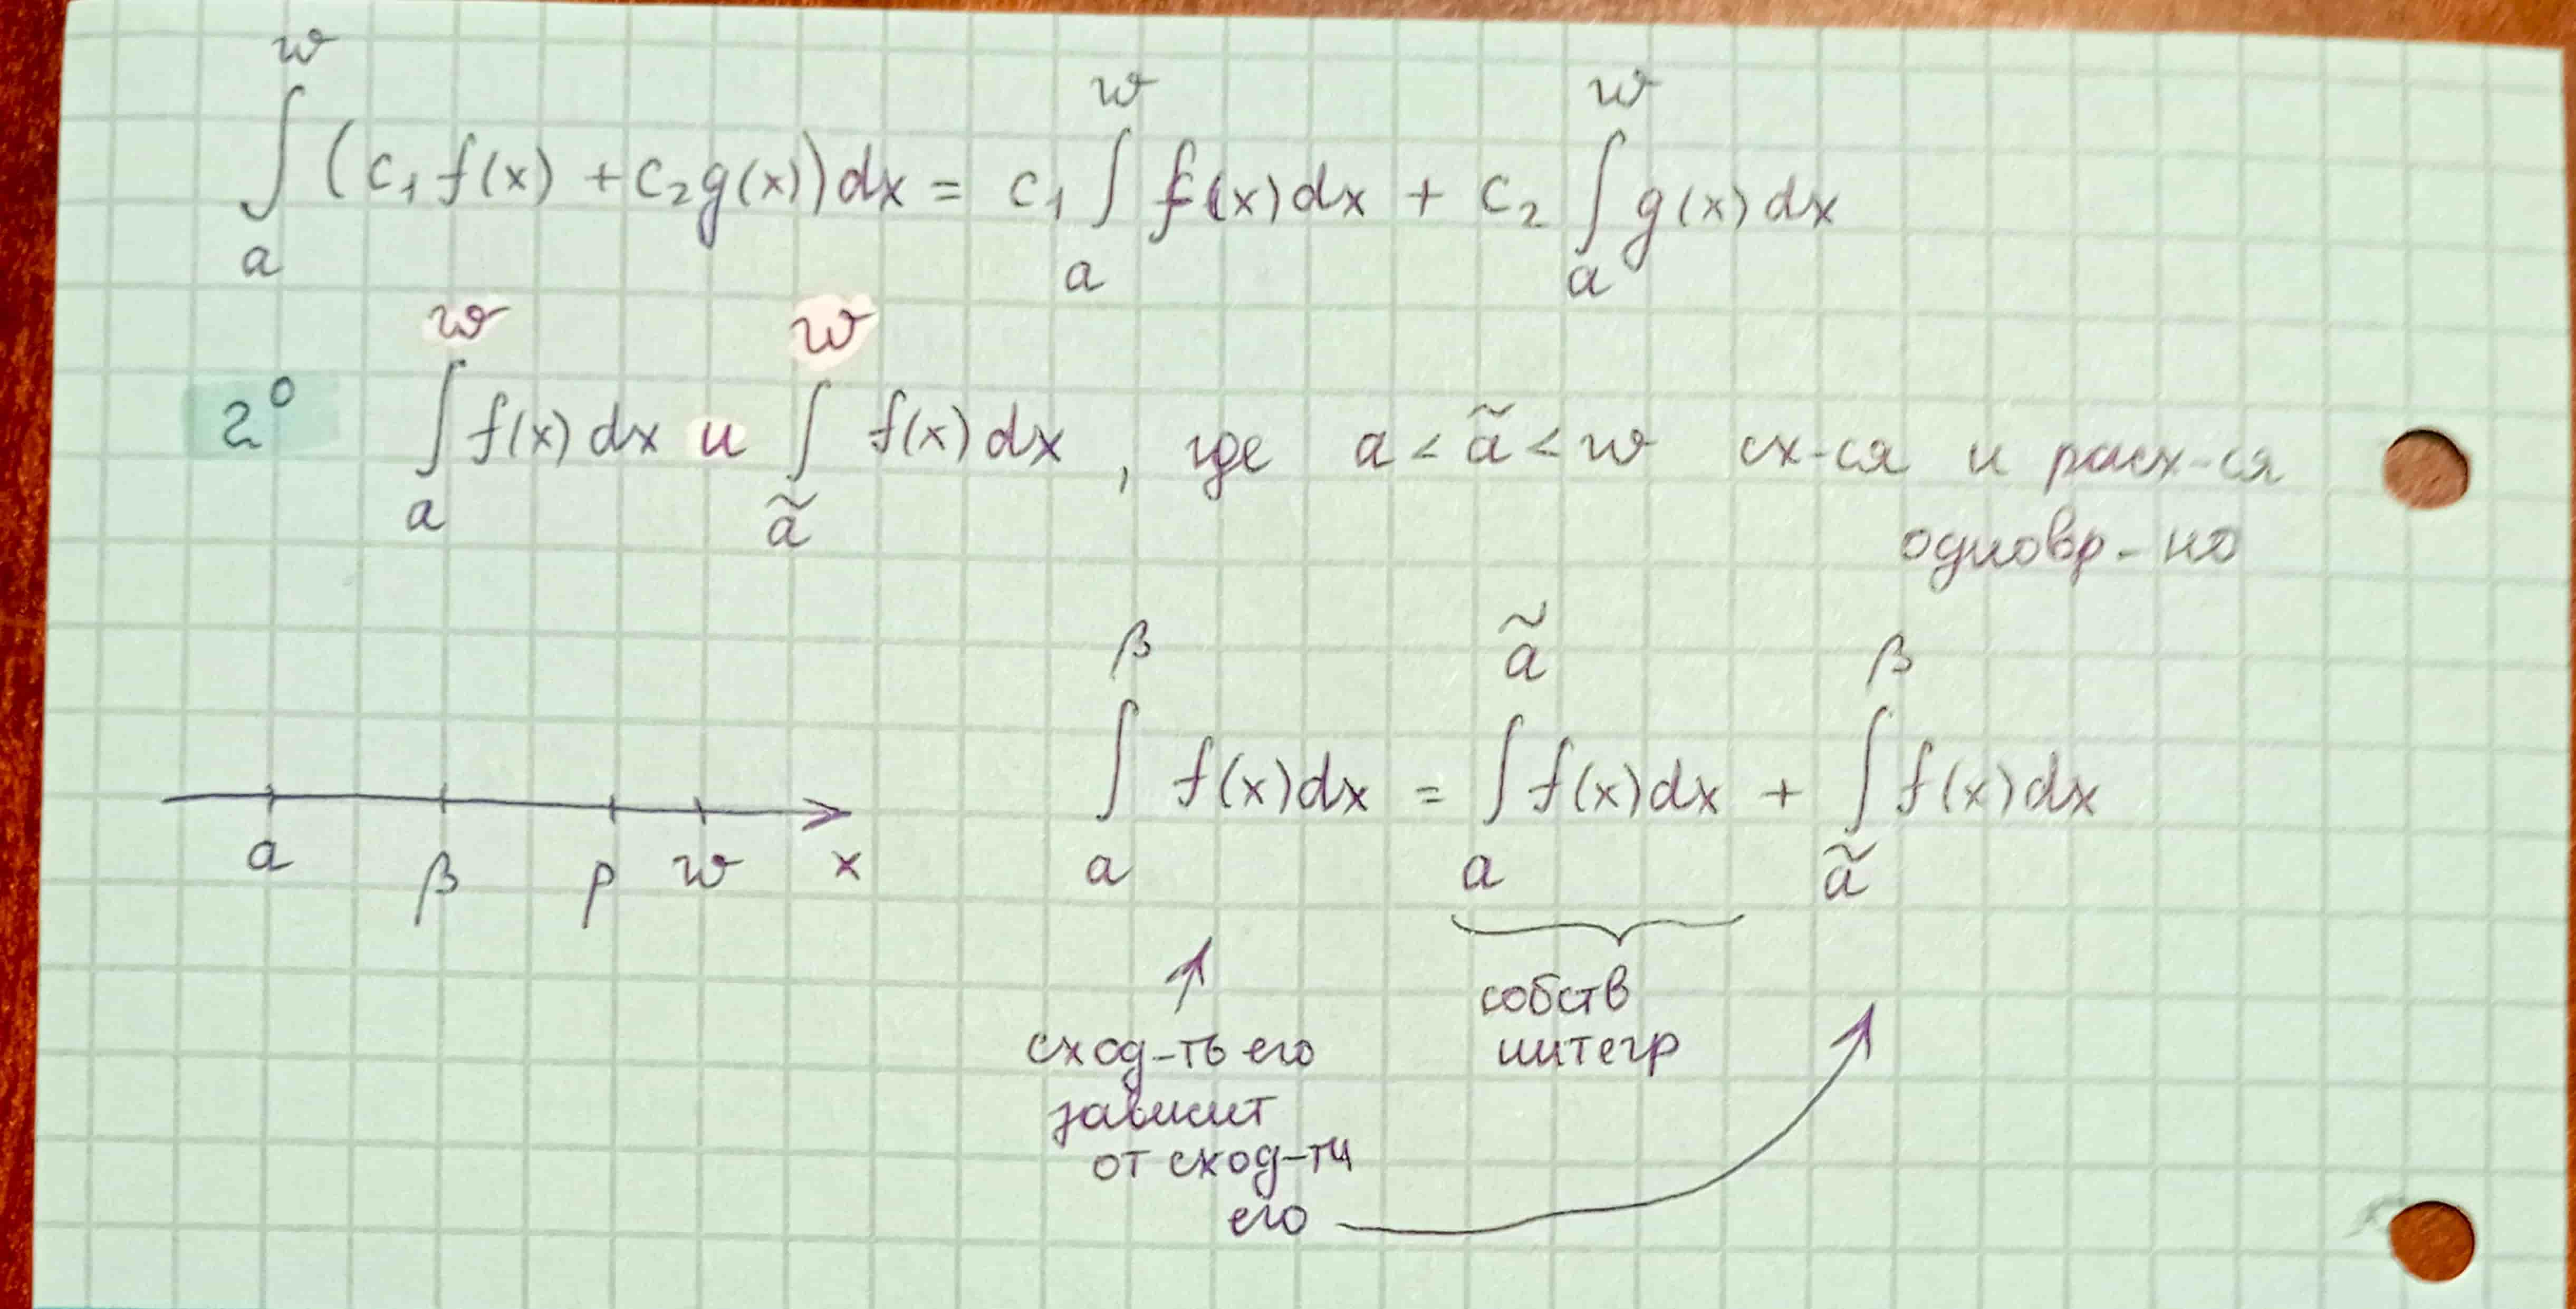 ∫_a^w (c₁ f(x) + c₂ g(x)) dx = c₁ ∫_a^w f(x) dx + c₂ ∫_a^w g(x) dx
2⁰ ∫_a^w f(x) dx и ∫_ã^w f(x) dx , где a < ã < w сх-ся и расх-ся
одновр-но
∫_a^β f(x) dx = ∫_a^ã f(x) dx + ∫_ã^β f(x) dx
a β ρ w x
собств
интегр
сход-ть его
зависит
от сход-ти
его